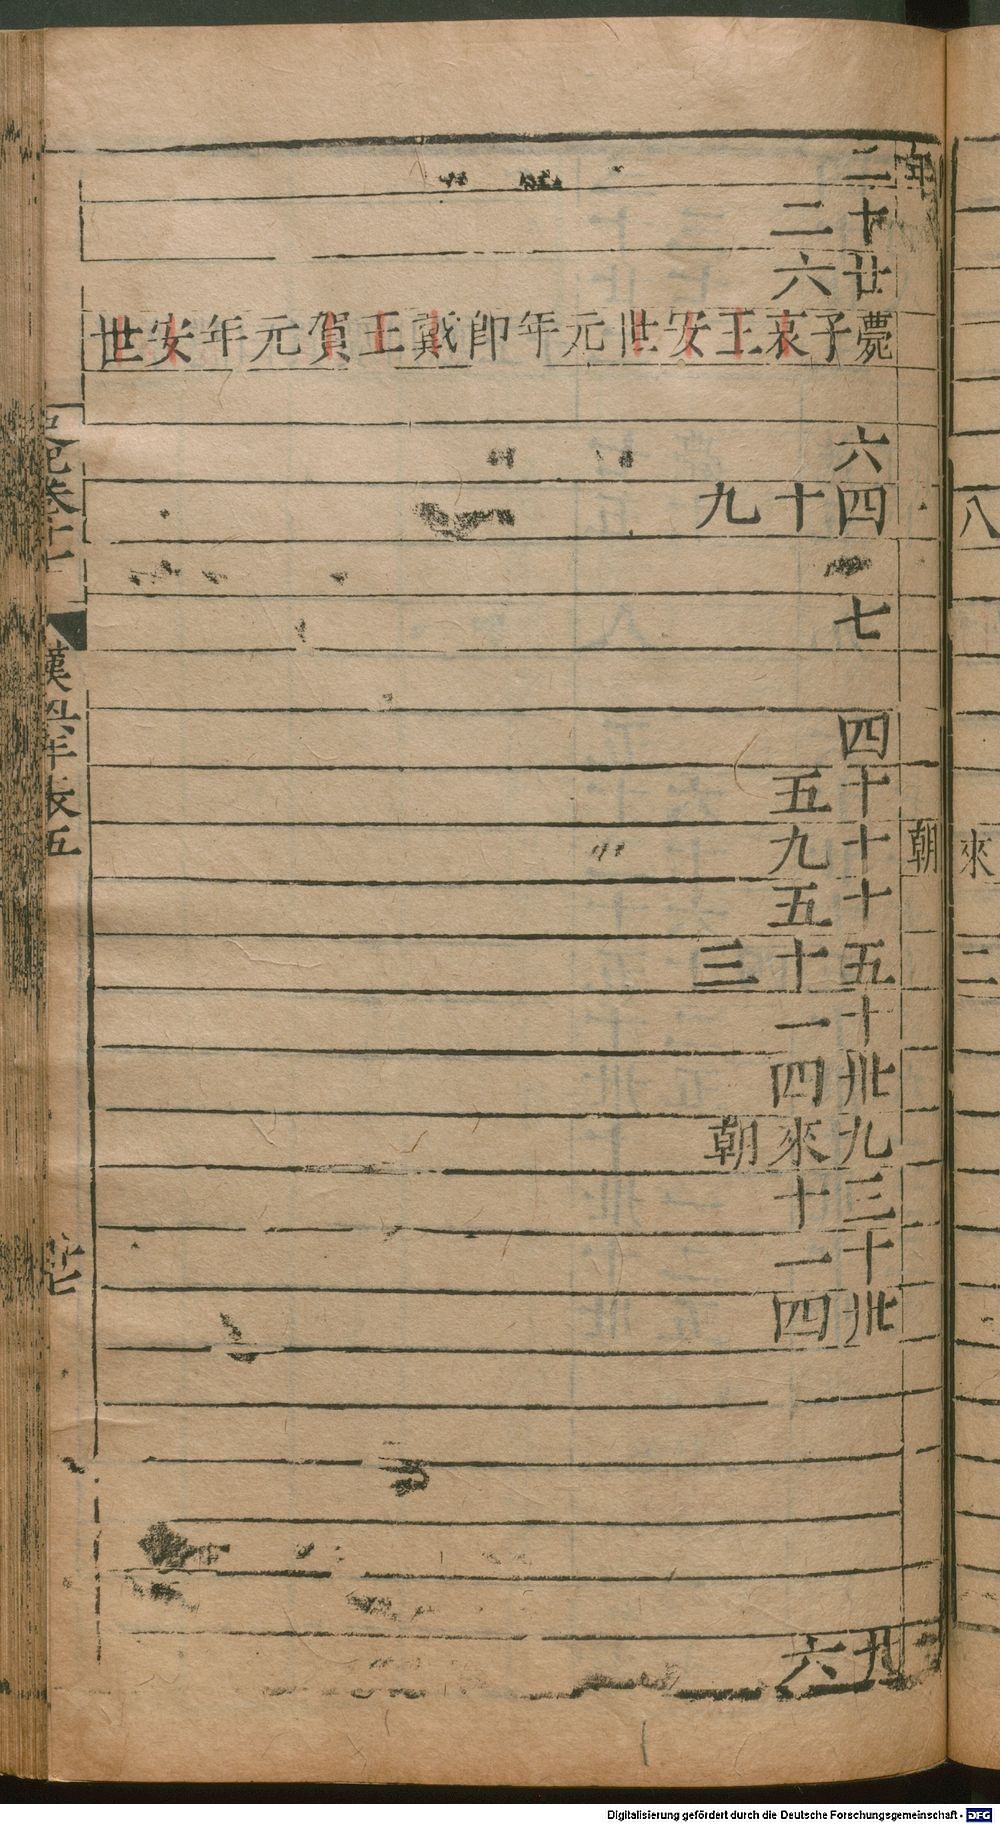 年
二
十二
廿六
薨子哀王安世元年即戴王賀元年安世
六
四十九
七
四
十五
十九
十五
五十三
十一
卅四
九來朝
三十
十一
卅四
六
朝
八
來
二
漢
年表五
Digitalisierung gefördert durch die Deutsche Forschungsgemeinschaft - DFG